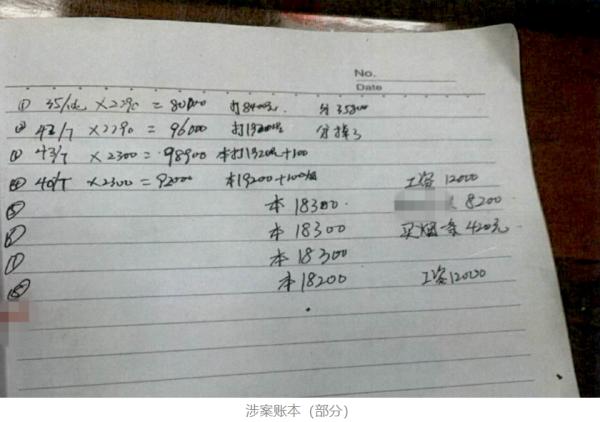 No.
Date
① 35/ ×2290 = 80000 打8400元. 分35800
② 42/T ×2290 = 96000 打19200元 分掉了
③ 43/T ×2300 = 98900 本打19200+100
④ 40/T ×2300 = 92000 本19200+100 工资 12000
⑤ 本 18300. 8200
⑥ 本 18300 买烟条 420元.
⑦ 本 18300
⑧ 本 18200 工资 12000
涉案账本（部分）